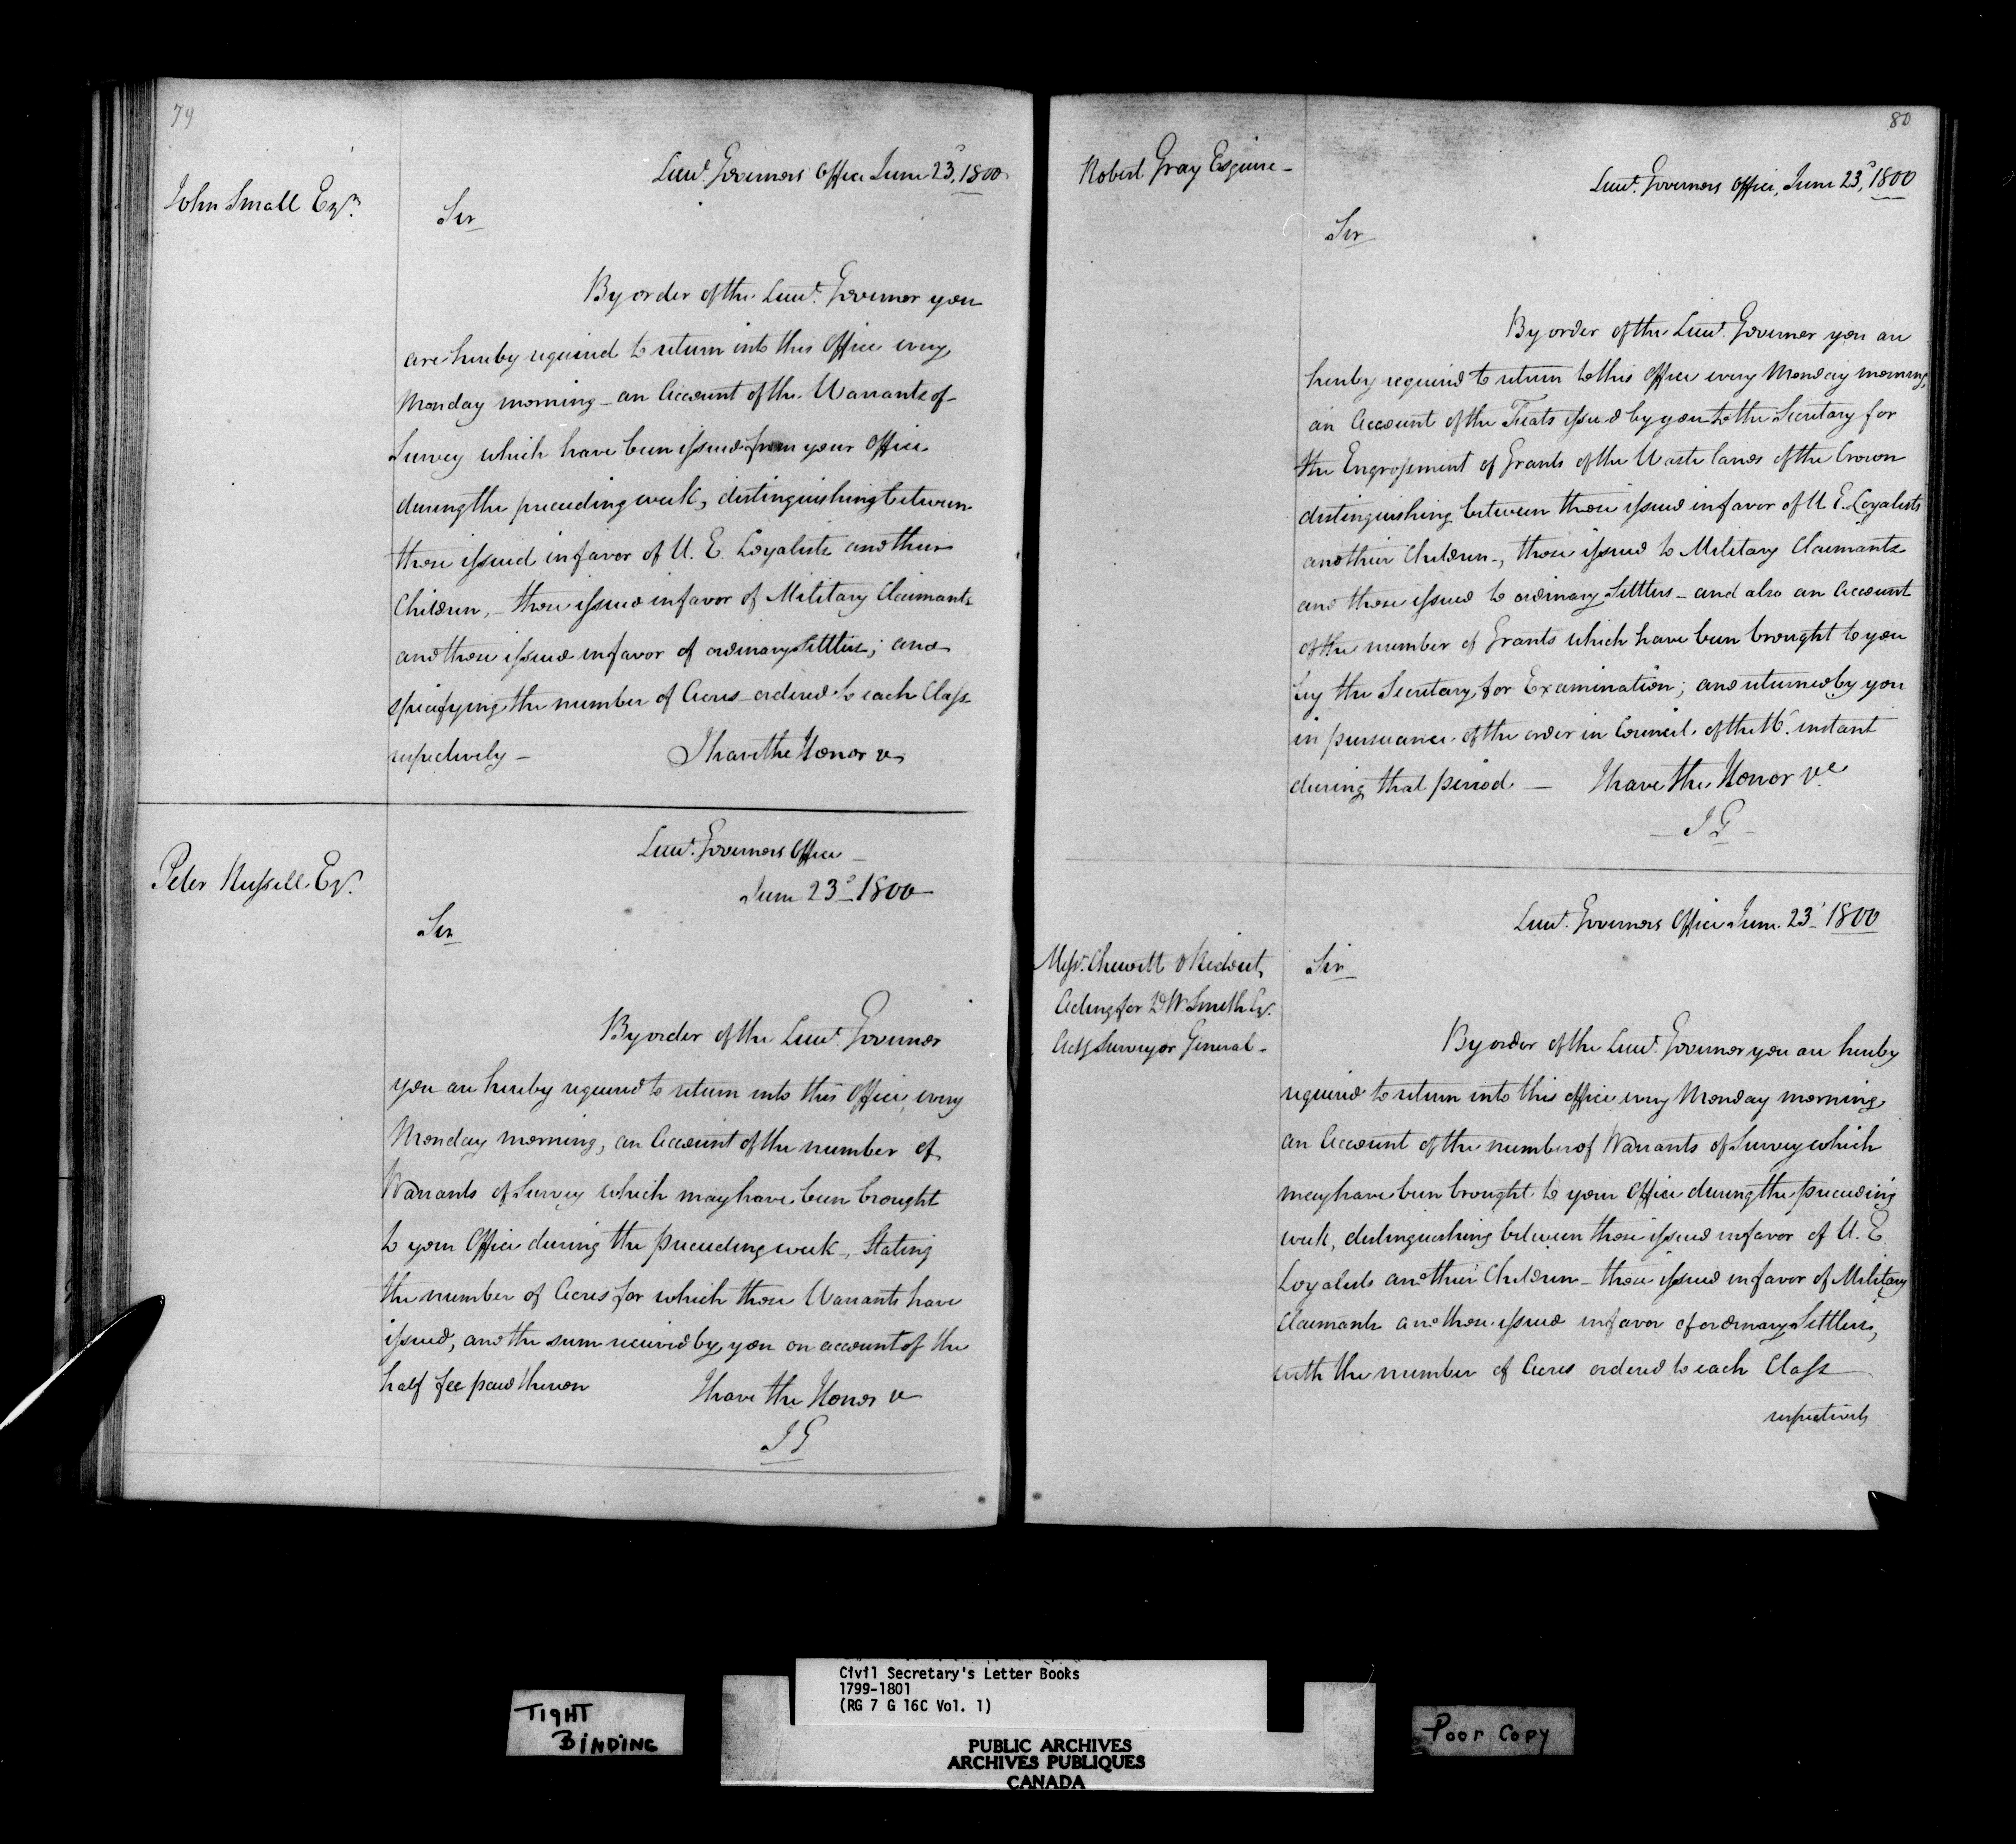 79
John Small Esqr.
Lieut. Governors Office June 23d, 1800
Sir
By order of the Lieut. Governor you
are hereby required to return into this Office every
Monday morning - an Account of the Warrants of
Survey which have been issued from your Office
during the preceeding week, distinguishing between
those issued in favor of U. E. Loyalists and their
Children, - those issued in favor of Military Claimants
and those issued in favor of ordinary Settlers; and
specifying the number of Acres ordered to each Class
respectively - I have the Honor &c
Peter Russell Esqr.
Lieut. Governors Office -
June 23d 1800
Sir
By order of the Lieut. Governor
you are hereby required to return into this Office, every
Monday morning, an Account of the number of
Warrants of Survey which may have been brought
to your Office during the preceeding week -, Stating
the number of Acres for which those Warrants have
issued, and the sum received by you on account of the
half fee paid thereon I have the Honor &c
J G
80
Robert Gray Esquire -
Lieut. Governors Office, June 23d, 1800
Sir
By order of the Lieut. Governor you are
hereby required to return to this Office every Monday morning,
an Account of the Fiats issued by you to the Secretary for
the Engrossment of Grants of the Waste lands of the Crown
distinguishing between those issued in favor of U E. Loyalists
and their Children -, those issued to Military Claimants
and those issued to ordinary Settlers - and also an Account
of the number of Grants which have been brought to you
by the Secretary for Examination; and returned by you
in pursuance of the order in Council of the instant
during that period - I have the Honor &c
- J G -
Lieut. Governors Office June 23d 1800
Messrs. Chewitt & Ridout,
Acting for D W Smith Esqr.
Actg Surveyor General -
Sir
By order of the Lieut. Governor you are hereby
required to return into this office every Monday morning
an Account of the number of Warrants of Survey which
may have been brought to your Office during the preceeding
week, distinguishing between those issued in favor of U. E.
Loyalists and their Children - those issued in favor of Military
Claimants and those issued in favor of ordinary Settlers,
with the number of Acres ordered to each Class
respectively
TIGHT
BINDING
Civil Secretary's Letter Books
1799-1801
(RG 7 G 16C Vol. 1)
PUBLIC ARCHIVES
ARCHIVES PUBLIQUES
CANADA
Poor Copy